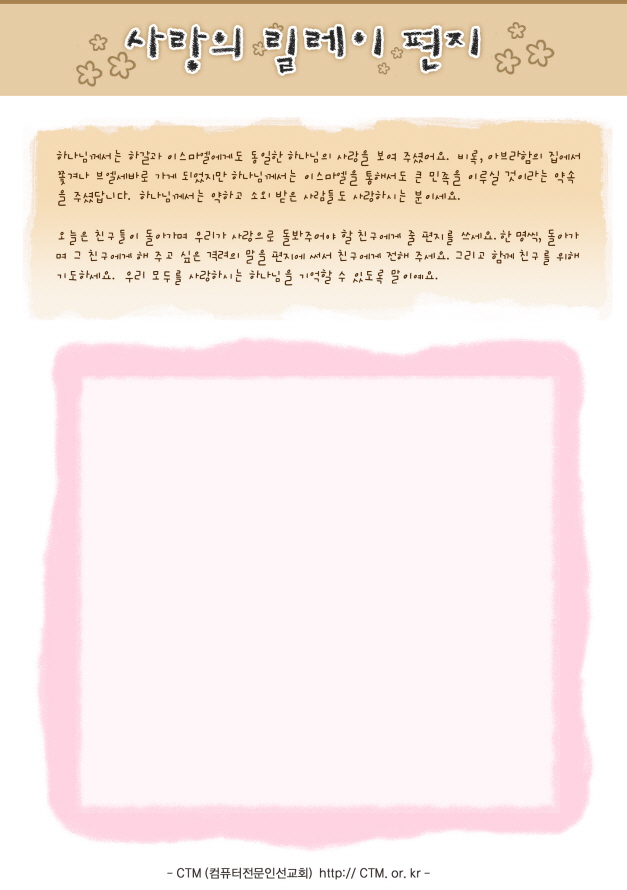 사랑의 릴레이 편지
하나님께서는 하갈과 이스마엘에게도 동일한 하나님의 사랑을 보여 주셨어요. 비록, 아브라함의 집에서
쫓겨나 브엘세바로 가게 되었지만 하나님께서는 이스마엘을 통해서도 큰 민족을 이루실 것이라는 약속
을 주셨답니다. 하나님께서는 약하고 소외 받은 사람들도 사랑하시는 분이세요.
오늘은 친구들이 돌아가며 우리가 사랑으로 돌봐주어야 할 친구에게 줄 편지를 쓰세요. 한 명씩, 돌아가
며 그 친구에게 해 주고 싶은 격려의 말을 편지에 써서 친구에게 전해 주세요. 그리고 함께 친구를 위해
기도하세요. 우리 모두를 사랑하시는 하나님을 기억할 수 있도록 말이예요.
- CTM (컴퓨터전문인선교회) http:// CTM. or. kr -